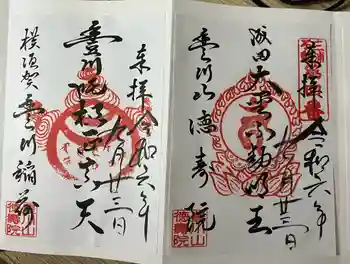 奉拝 令和六年 月廿三日
豊川吒枳尼真天
横須賀 豊川稲荷
奉拝 令和六年 月廿三日
成田大聖不動明王
豊川山 徳寿院